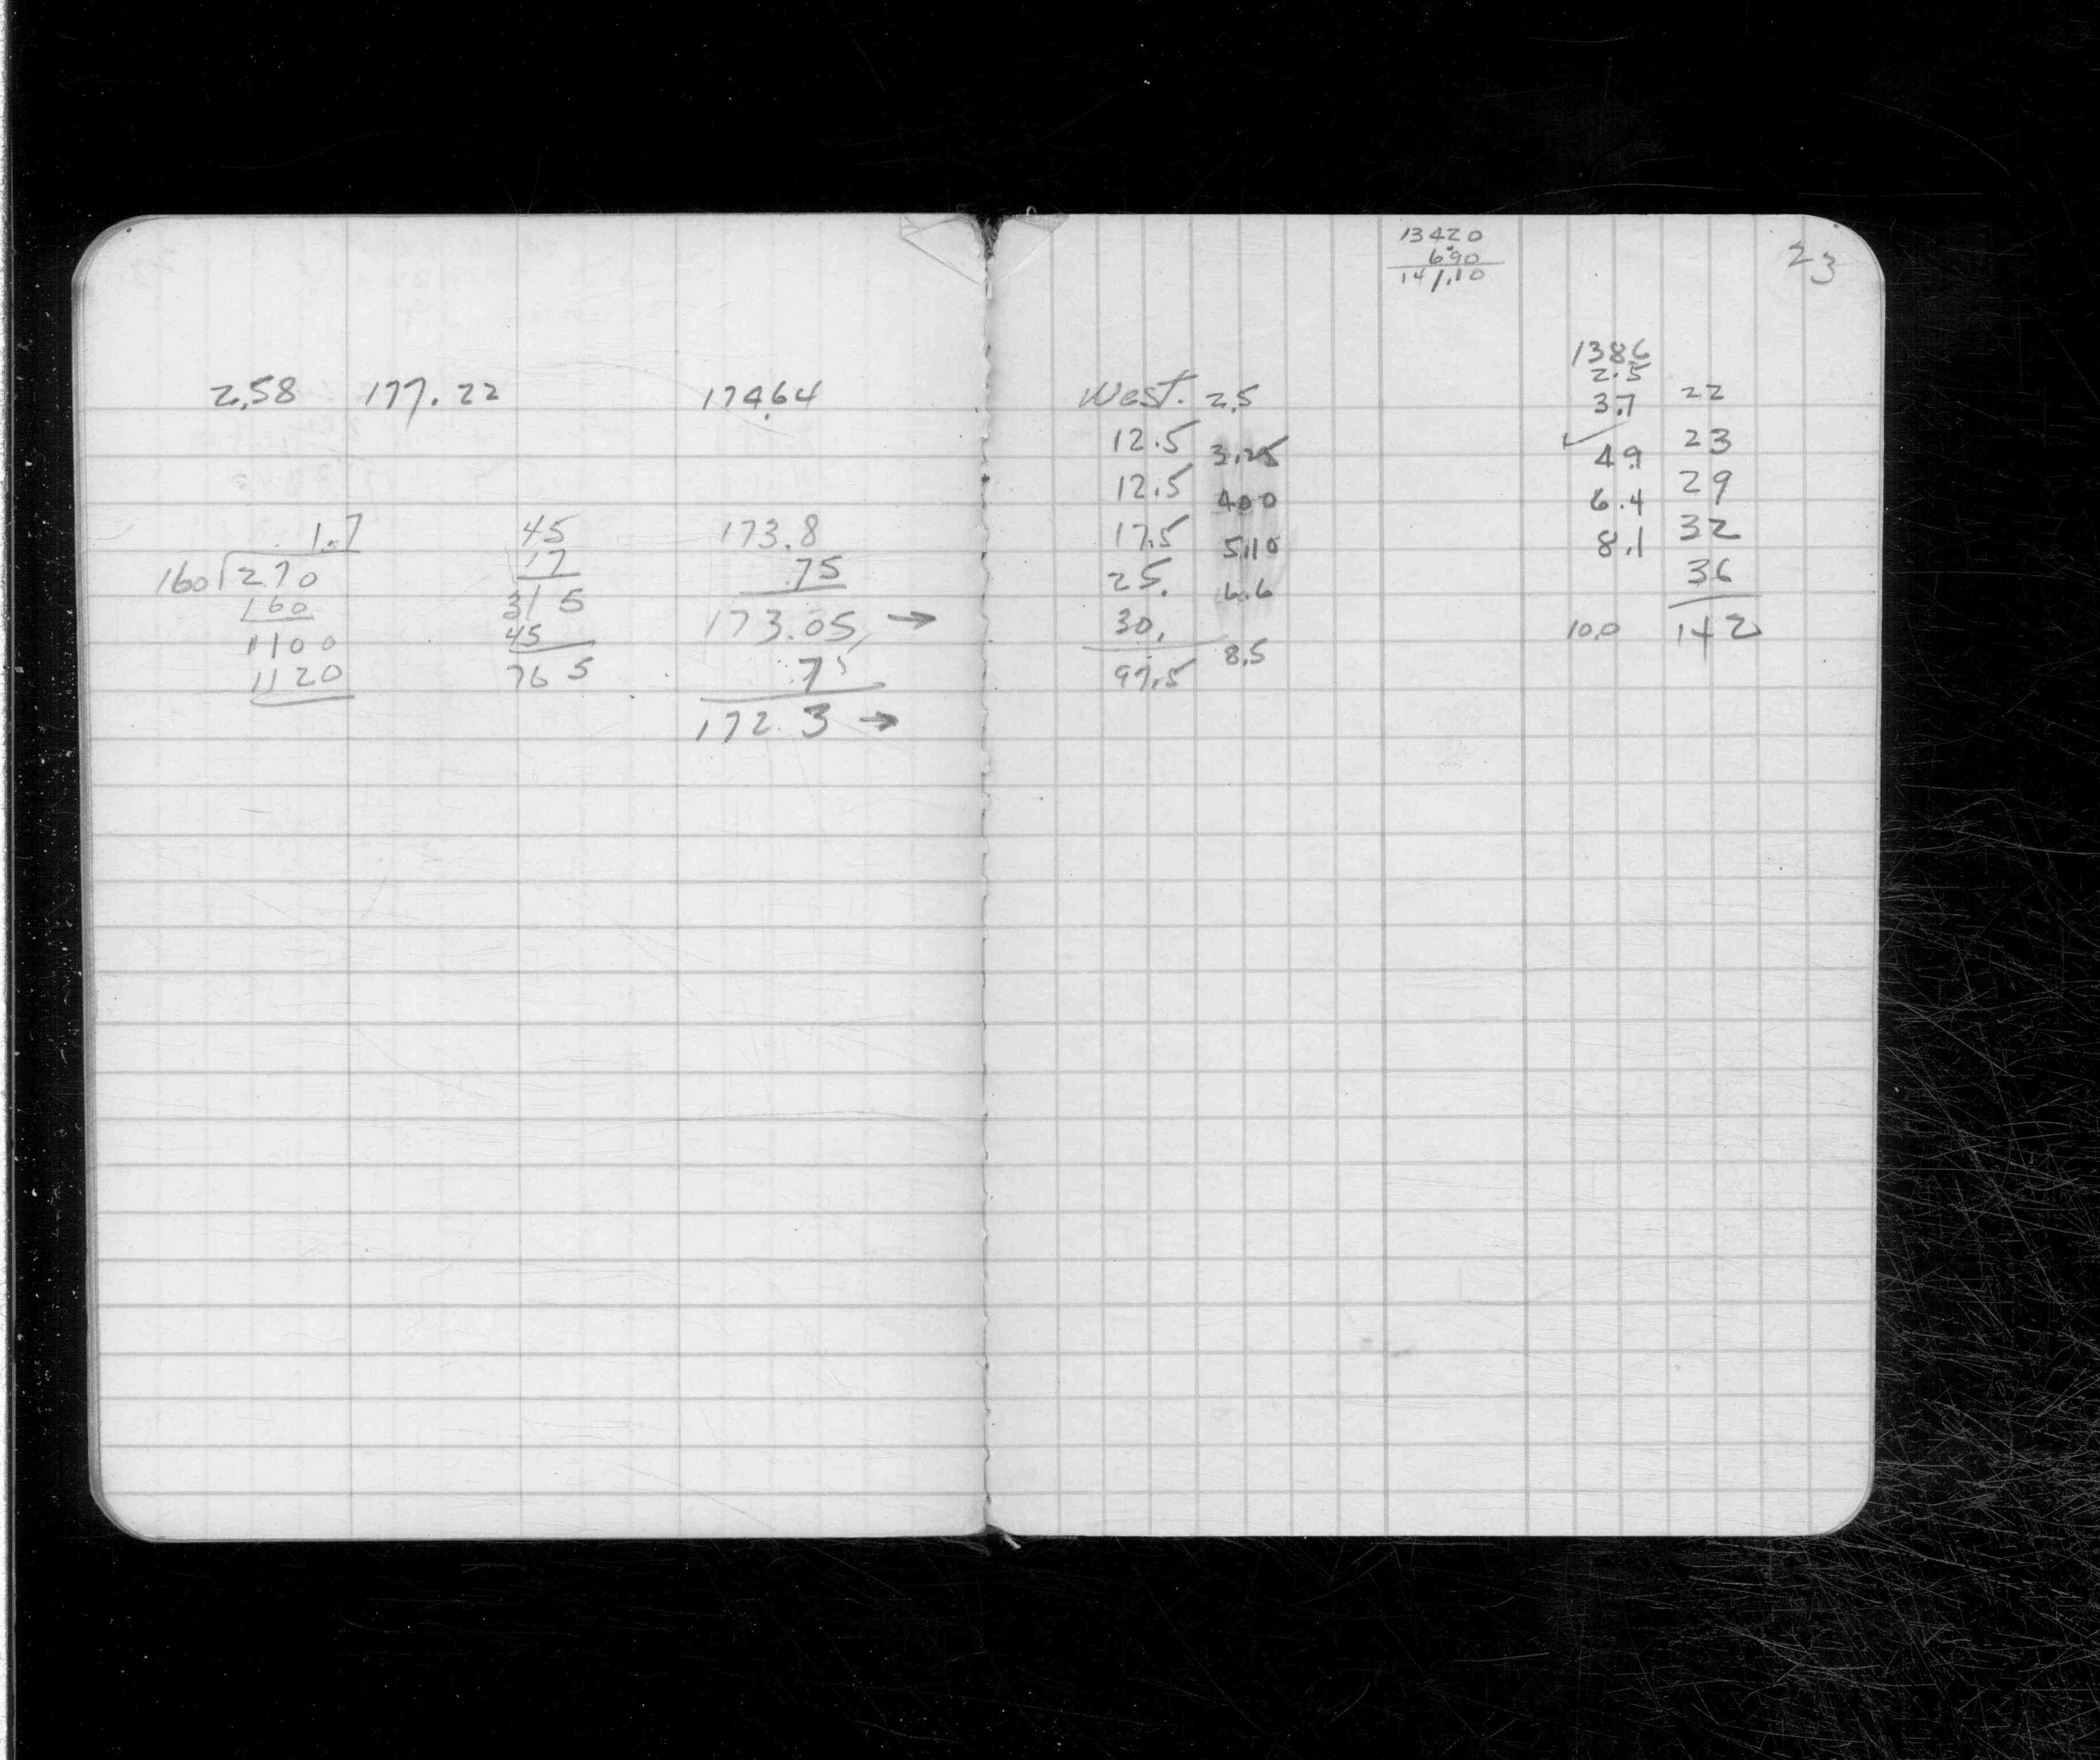 2.58 177.22 174.64
1.7 45 173.8
160 270 17 .75
160 315 173.05 →
1100 45 .75
1120 765 172.3 →
13420
6.90
141.10
23
138.6
2.5
West. 2.5 3.7 22
12.5 3.25 4.9 23
12.5 400 6.4 29
17.5 5.10 8.1 32
25. 6.6 36
30. 10.0 142
97.5 8.5